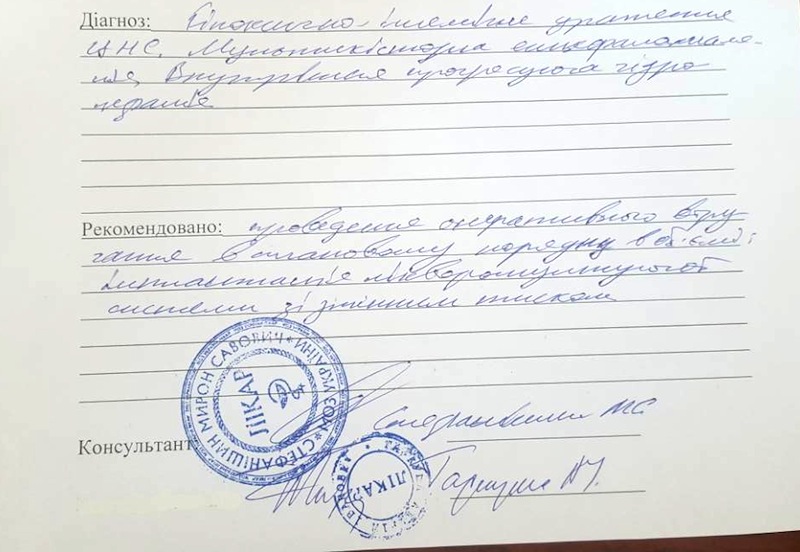 Діагноз: Гіпоксично-ішемічне ураження
ЦНС. Мультикістозна енцефаломаля-
ція, Внутрішня прогресуюча гідро
цефалія
Рекомендовано: проведення оперативного втру
чання в плановому порядку в об'ємі:
імплантація лікворошунтуючої
системи зі змінним тиском
СТЕФАНИШИН МИРОН САВОВИЧ
МОЗ УКРАЇНИ
ЛІКАР
Консультант
Стефанишин МС
ЛІКАР